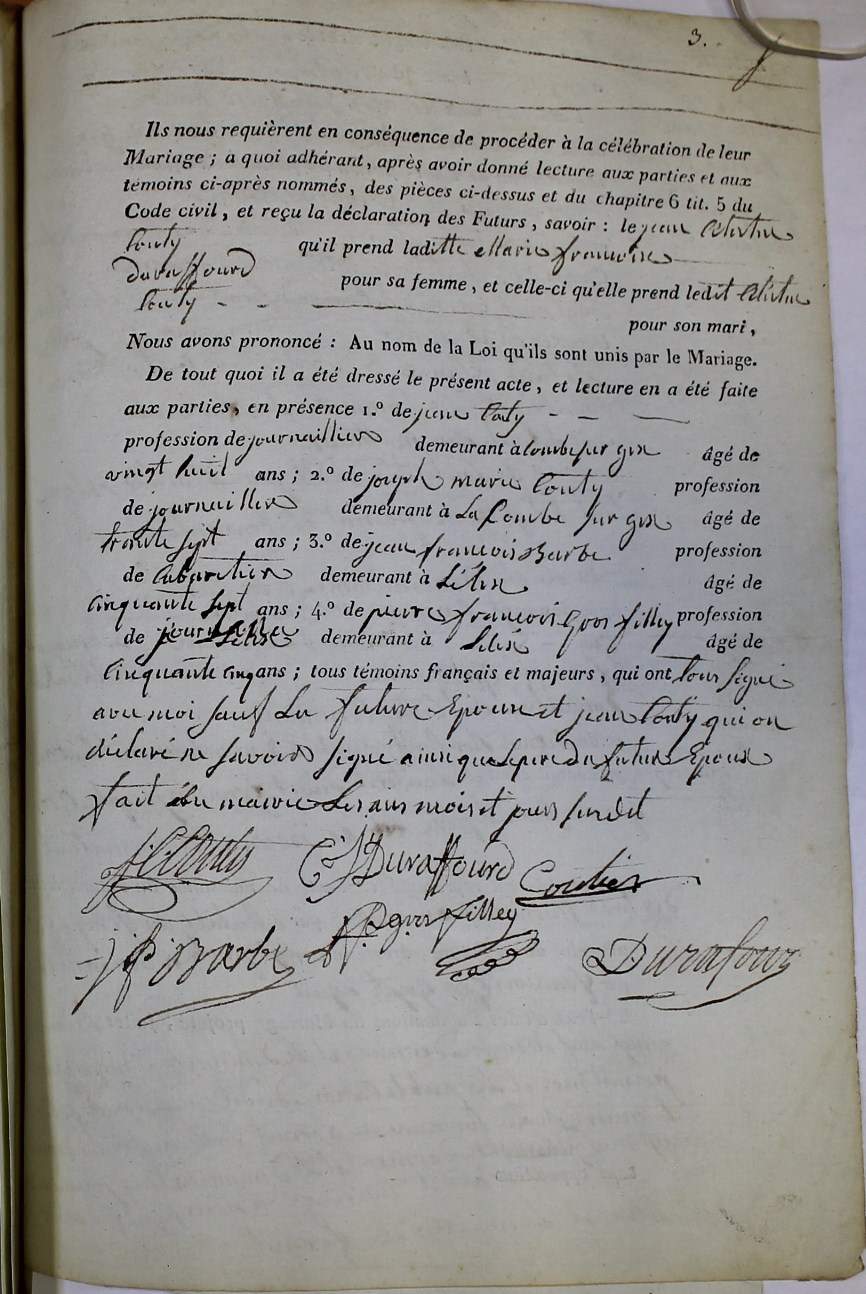 3.
Ils nous requièrent en conséquence de procéder à la célébration de leur
Mariage ; a quoi adhérant, après avoir donné lecture aux parties et aux
témoins ci-après nommés, des pièces ci-dessus et du chapitre 6 tit. 5 du
Code civil, et reçu la déclaration des Futurs, savoir : le jean
qu'il prend laditte Marie francoise
Duraffourd
pour sa femme, et celle-ci qu'elle prend ledit
pour son mari,
Nous avons prononcé : Au nom de la Loi qu'ils sont unis par le Mariage.
De tout quoi il a été dressé le présent acte, et lecture en a été faite
aux parties, en présence 1.º de jean
profession de journaillier demeurant à lombe sur gex âgé de
vingt huit ans ; 2.º de joseph marie Conty profession
de journaillier demeurant à La Combe sur gex âgé de
trente sept ans ; 3.º de jean francois Barbe profession
de Cabaretier demeurant à Lélex âgé de
cinquante sept ans ; 4.º de pierre francois Gros filley profession
de demeurant à Lelex âgé de
cinquante cinq ans ; tous témoins français et majeurs, qui ont tous signé
avec moi sauf La future Epouse et jean Conty qui on
déclaré ne savoir signé ainsi que le pere du futur Epoux
fait en mairie Les ans mois et jours susdit
Duraffourd
j f Barbe gros filley Durafour